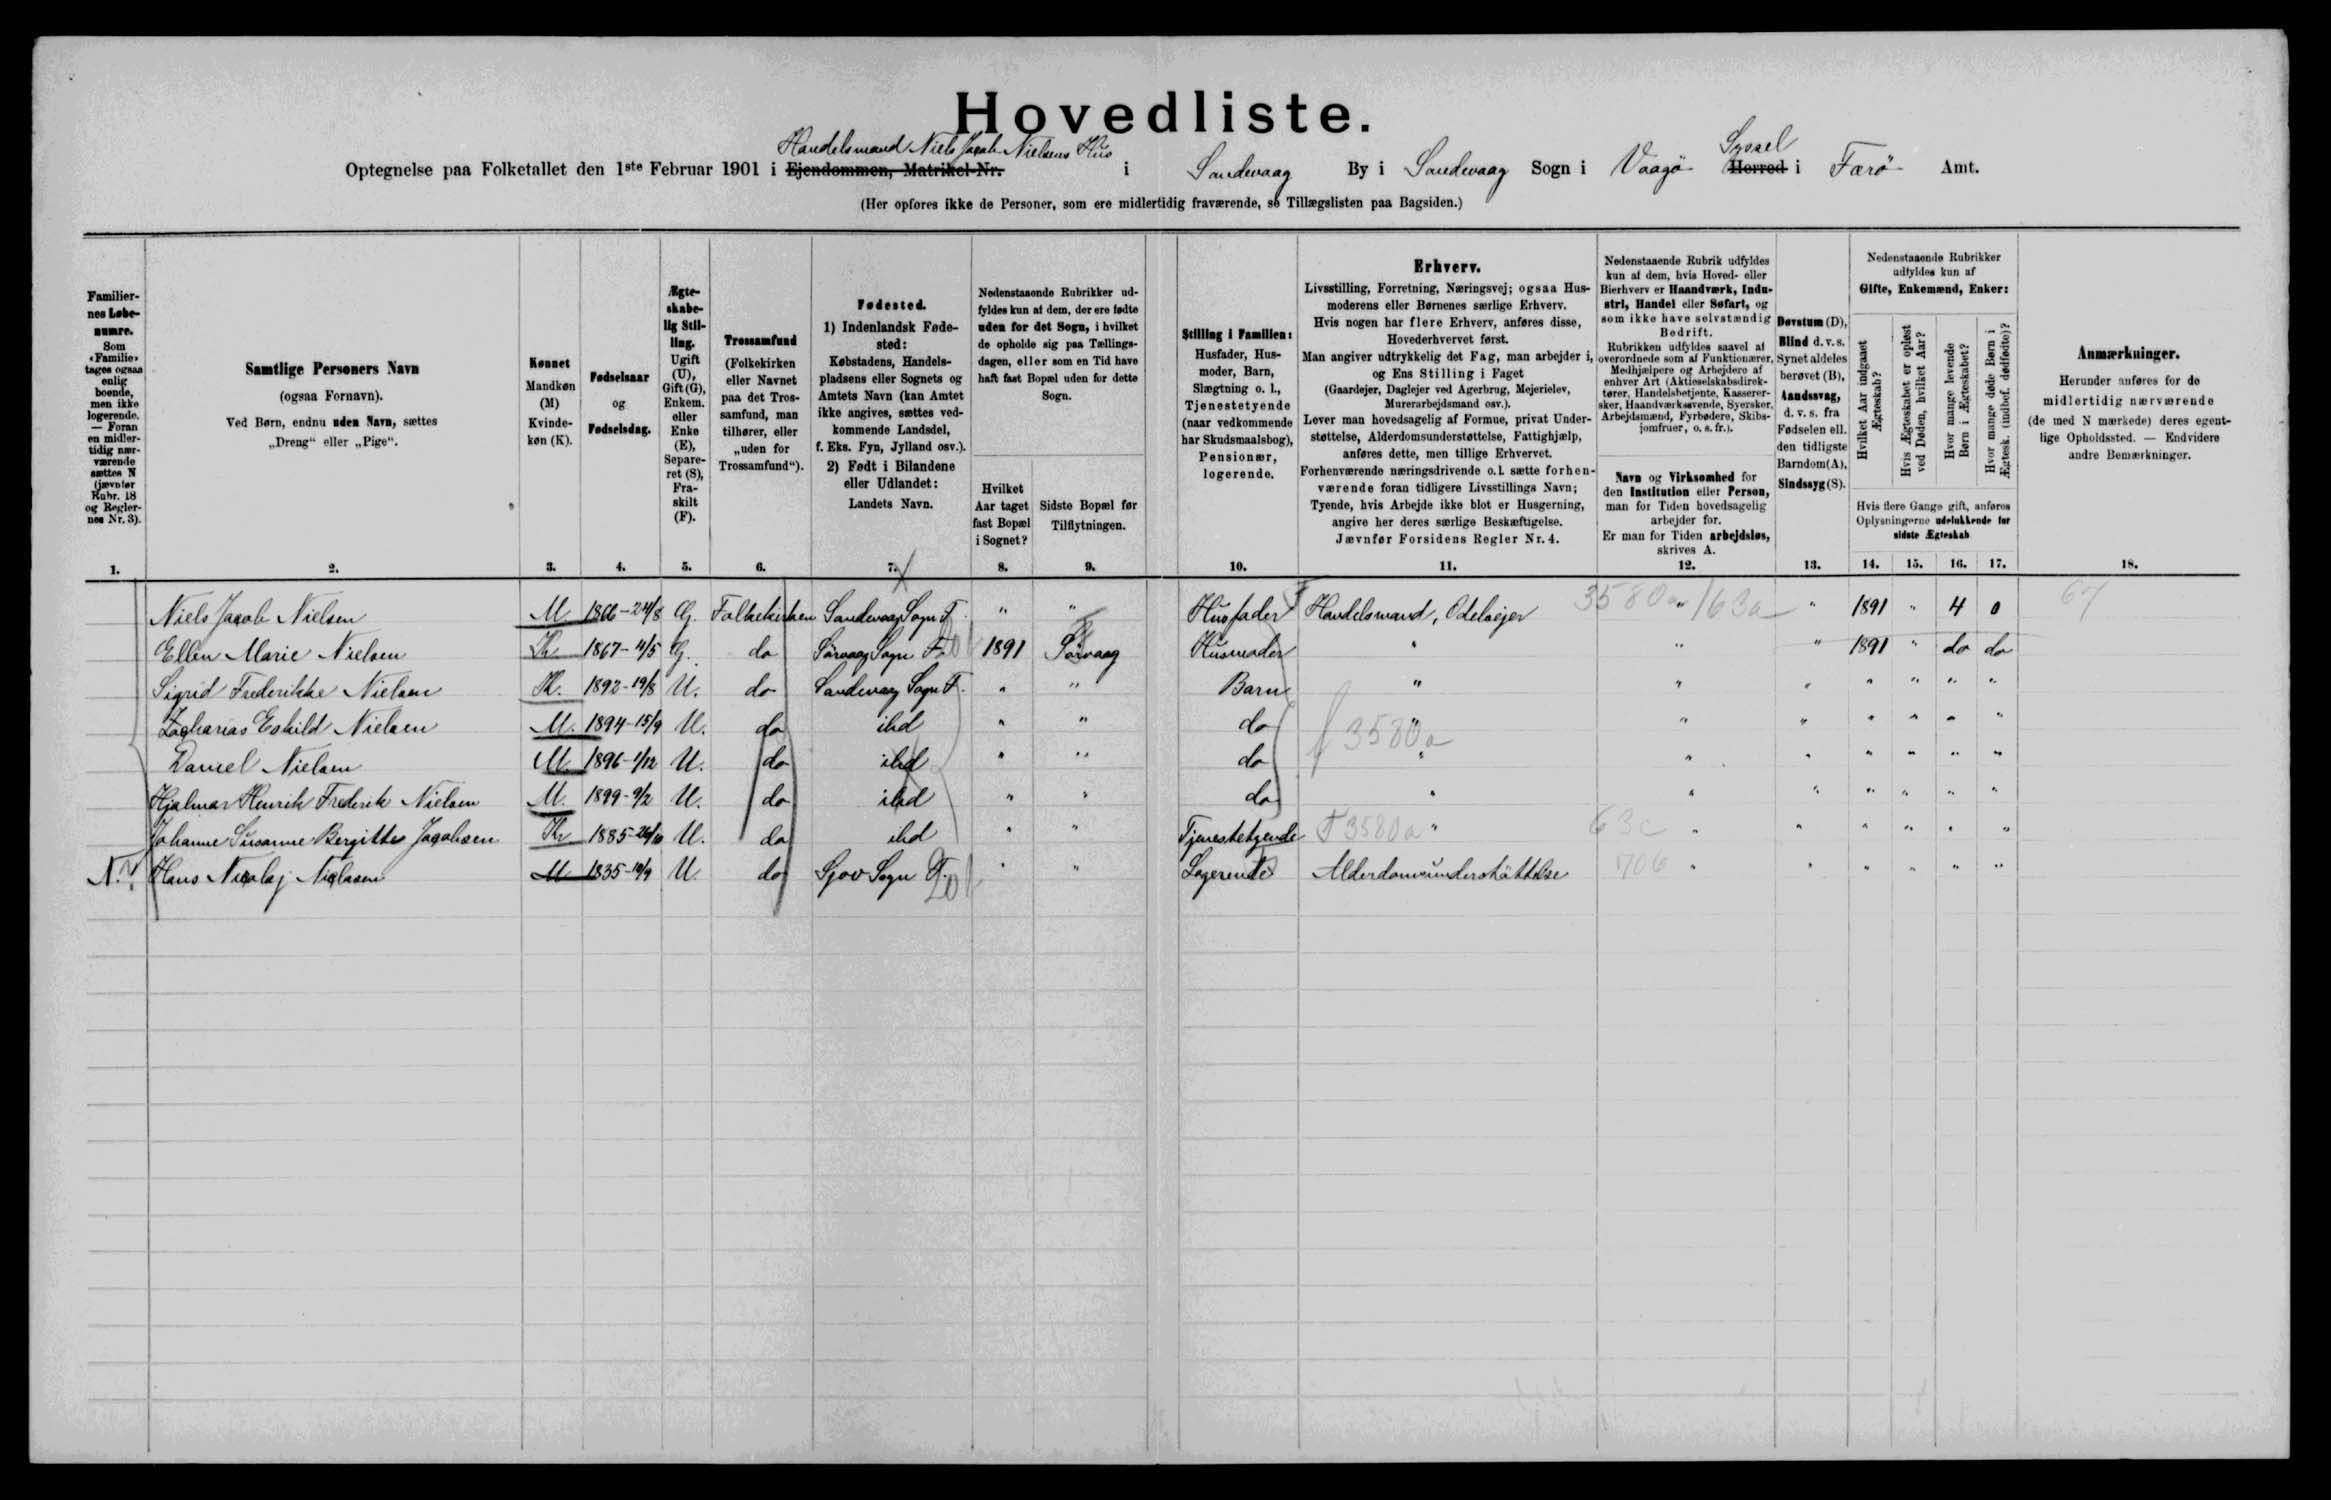 Hovedliste.
Handelsmand Niels Jacob Nielsens Hus Syssel
Optegnelse paa Folketallet den 1ste Februar 1901 i Ejendommen, Matrikel-Nr. i Sandevaag By i Sandevaag Sogn i Vaagø Herred i Færø Amt.
(Her opføres ikke de Personer, som ere midlertidig fraværende, se Tillægslisten paa Bagsiden.)
Familier-
nes Løbe-
numre.
Som
«Familie»
tages ogsaa
enlig
boende,
men ikke
logerende.
— Foran
en midler-
tidig nær-
værende
sættes N
(jævnfør
Rubr. 18
og Regler-
nes Nr. 3).
Samtlige Personers Navn
(ogsaa Fornavn).
Ved Børn, endnu uden Navn, sættes
„Dreng“ eller „Pige“.
Kønnet
Mandkøn
(M)
Kvinde-
køn (K).
Fødselsaar
og
Fødselsdag.
Ægte-
skabe-
lig Stil-
ling.
Ugift
(U),
Gift (G),
Enkem.
eller
Enke
(E),
Separe-
ret (S),
Fra-
skilt
(F).
Trossamfund
(Folkekirken
eller Navnet
paa det Tros-
samfund, man
tilhører, eller
„uden for
Trossamfund“).
Fødested.
1) Indenlandsk Føde-
sted:
Købstadens, Handels-
pladsens eller Sognets og
Amtets Navn (kan Amtet
ikke angives, sættes ved-
kommende Landsdel,
f. Eks. Fyn, Jylland osv.).
2) Født i Bilandene
eller Udlandet:
Landets Navn.
Nedenstaaende Rubrikker ud-
fyldes kun af dem, der ere fødte
uden for det Sogn, i hvilket
de opholde sig paa Tællings-
dagen, eller som en Tid have
haft fast Bopæl uden for dette
Sogn.
Hvilket
Aar taget
fast Bopæl
i Sognet?
Sidste Bopæl før
Tilflytningen.
Stilling i Familien:
Husfader, Hus-
moder, Barn,
Slægtning o. l.,
Tjenestetyende
(naar vedkommende
har Skudsmaalsbog),
Pensionær,
logerende.
Erhverv.
Livsstilling, Forretning, Næringsvej; ogsaa Hus-
moderens eller Børnenes særlige Erhverv.
Hvis nogen har flere Erhverv, anføres disse,
Hovederhvervet først.
Man angiver udtrykkelig det Fag, man arbejder i,
og Ens Stilling i Faget
(Gaardejer, Daglejer ved Agerbrug, Mejerielev,
Murerarbejdsmand osv.).
Lever man hovedsagelig af Formue, privat Under-
støttelse, Alderdomsunderstøttelse, Fattighjælp,
anføres dette, men tillige Erhvervet.
Forhenværende næringsdrivende o. l. sætte forhen-
værende foran tidligere Livsstillings Navn;
Tyende, hvis Arbejde ikke blot er Husgerning,
angive her deres særlige Beskæftigelse.
Jævnfør Forsidens Regler Nr. 4.
Nedenstaaende Rubrik udfyldes
kun af dem, hvis Hoved- eller
Bierhverv er Haandværk, Indu-
stri, Handel eller Søfart, og
som ikke have selvstændig
Bedrift.
Rubrikken udfyldes saavel af
overordnede som af Funktionærer,
Medhjælpere og Arbejdere af
enhver Art (Aktieselskabsdirek-
tører, Handelsbetjente, Kasserer-
sker, Haandværkssvende, Syersker,
Arbejdsmænd, Fyrbødere, Skibs-
jomfruer, o. s. fr.).
Navn og Virksomhed for
den Institution eller Person,
man for Tiden hovedsagelig
arbejder for.
Er man for Tiden arbejdsløs,
skrives A.
Døvstum (D),
Blind d. v. s.
Synet aldeles
berøvet (B),
Aandssvag,
d. v. s. fra
Fødselen ell.
den tidligste
Barndom (A),
Sindssyg (S).
Nedenstaaende Rubrikker
udfyldes kun af
Gifte, Enkemænd, Enker:
Hvilket Aar indgaaet
Ægteskab?
Hvis Ægteskabet er opløst
ved Døden, hvilket Aar?
Hvor mange levende
Børn i Ægteskabet?
Hvor mange døde Børn i
Ægtesk. (indbef. dødfødte)?
Hvis flere Gange gift, anføres
Oplysningerne udelukkende for
sidste Ægteskab
Anmærkninger.
Herunder anføres for de
midlertidig nærværende
(de med N mærkede) deres egent-
lige Opholdssted. — Endvidere
andre Bemærkninger.
1. 2. 3. 4. 5. 6. 7. 8. 9. 10. 11. 12. 13. 14. 15. 16. 17. 18.
Niels Jacob Nielsen M. 1866-24/8 G. Folkekirken Sandevaag Sogn F. " " Husfader Handelsmand, Odelsejer 3580a " 163a " 1891 " 4 0 67
Ellen Marie Nielsen K. 1867-4/5 G. do Sørvaag Sogn F. 1891 Sørvaag Husmoder " " " 1891 " do do
Sigrid Frederikke Nielsen K. 1892-19/8 U. do Sandevaag Sogn F. " " Barn " " " " " " "
Zacharias Eskild Nielsen M. 1894-15/9 U. do ibd " " do f 3580a " " " " " " "
Daniel Nielsen M. 1896-1/12 U. do ibd " " do " " " " " " "
Hjalmar Henrik Frederik Nielsen M. 1899-9/2 U. do ibd " " do " " " " " " "
Johanne Susanne Bergitte Jacobsen K. 1885-26/10 U. do ibd " " Tjenestetyende T 3580a " 63c " " " " " "
N. Hans Nicolaj Niclasen M 1835-10/9 U. do Gjov Sogn F. " " Logerende Alderdomsunderstøttelse 706 " " " " " "